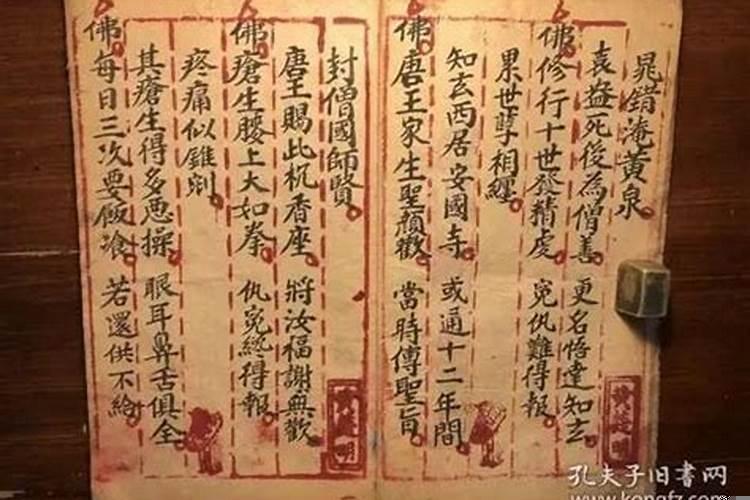 晁錯淹黃泉
袁盎死後為僧善 更名悟達知玄
佛修行十世發精虔 寃仇難得報
累世孽相纏
知玄西居安國寺 或通十二年間
佛唐王家生聖顏歡 當時傳聖旨
封僧國師賢
唐王賜此杌香座 將汝福謝無歡
佛瘡生腰上大如拳 仇寃終得報
疼痛似錐剜
其瘡生得多惡操 眼耳鼻舌俱全
佛每日三次要飯飡 若還供不給
孔夫子旧書网